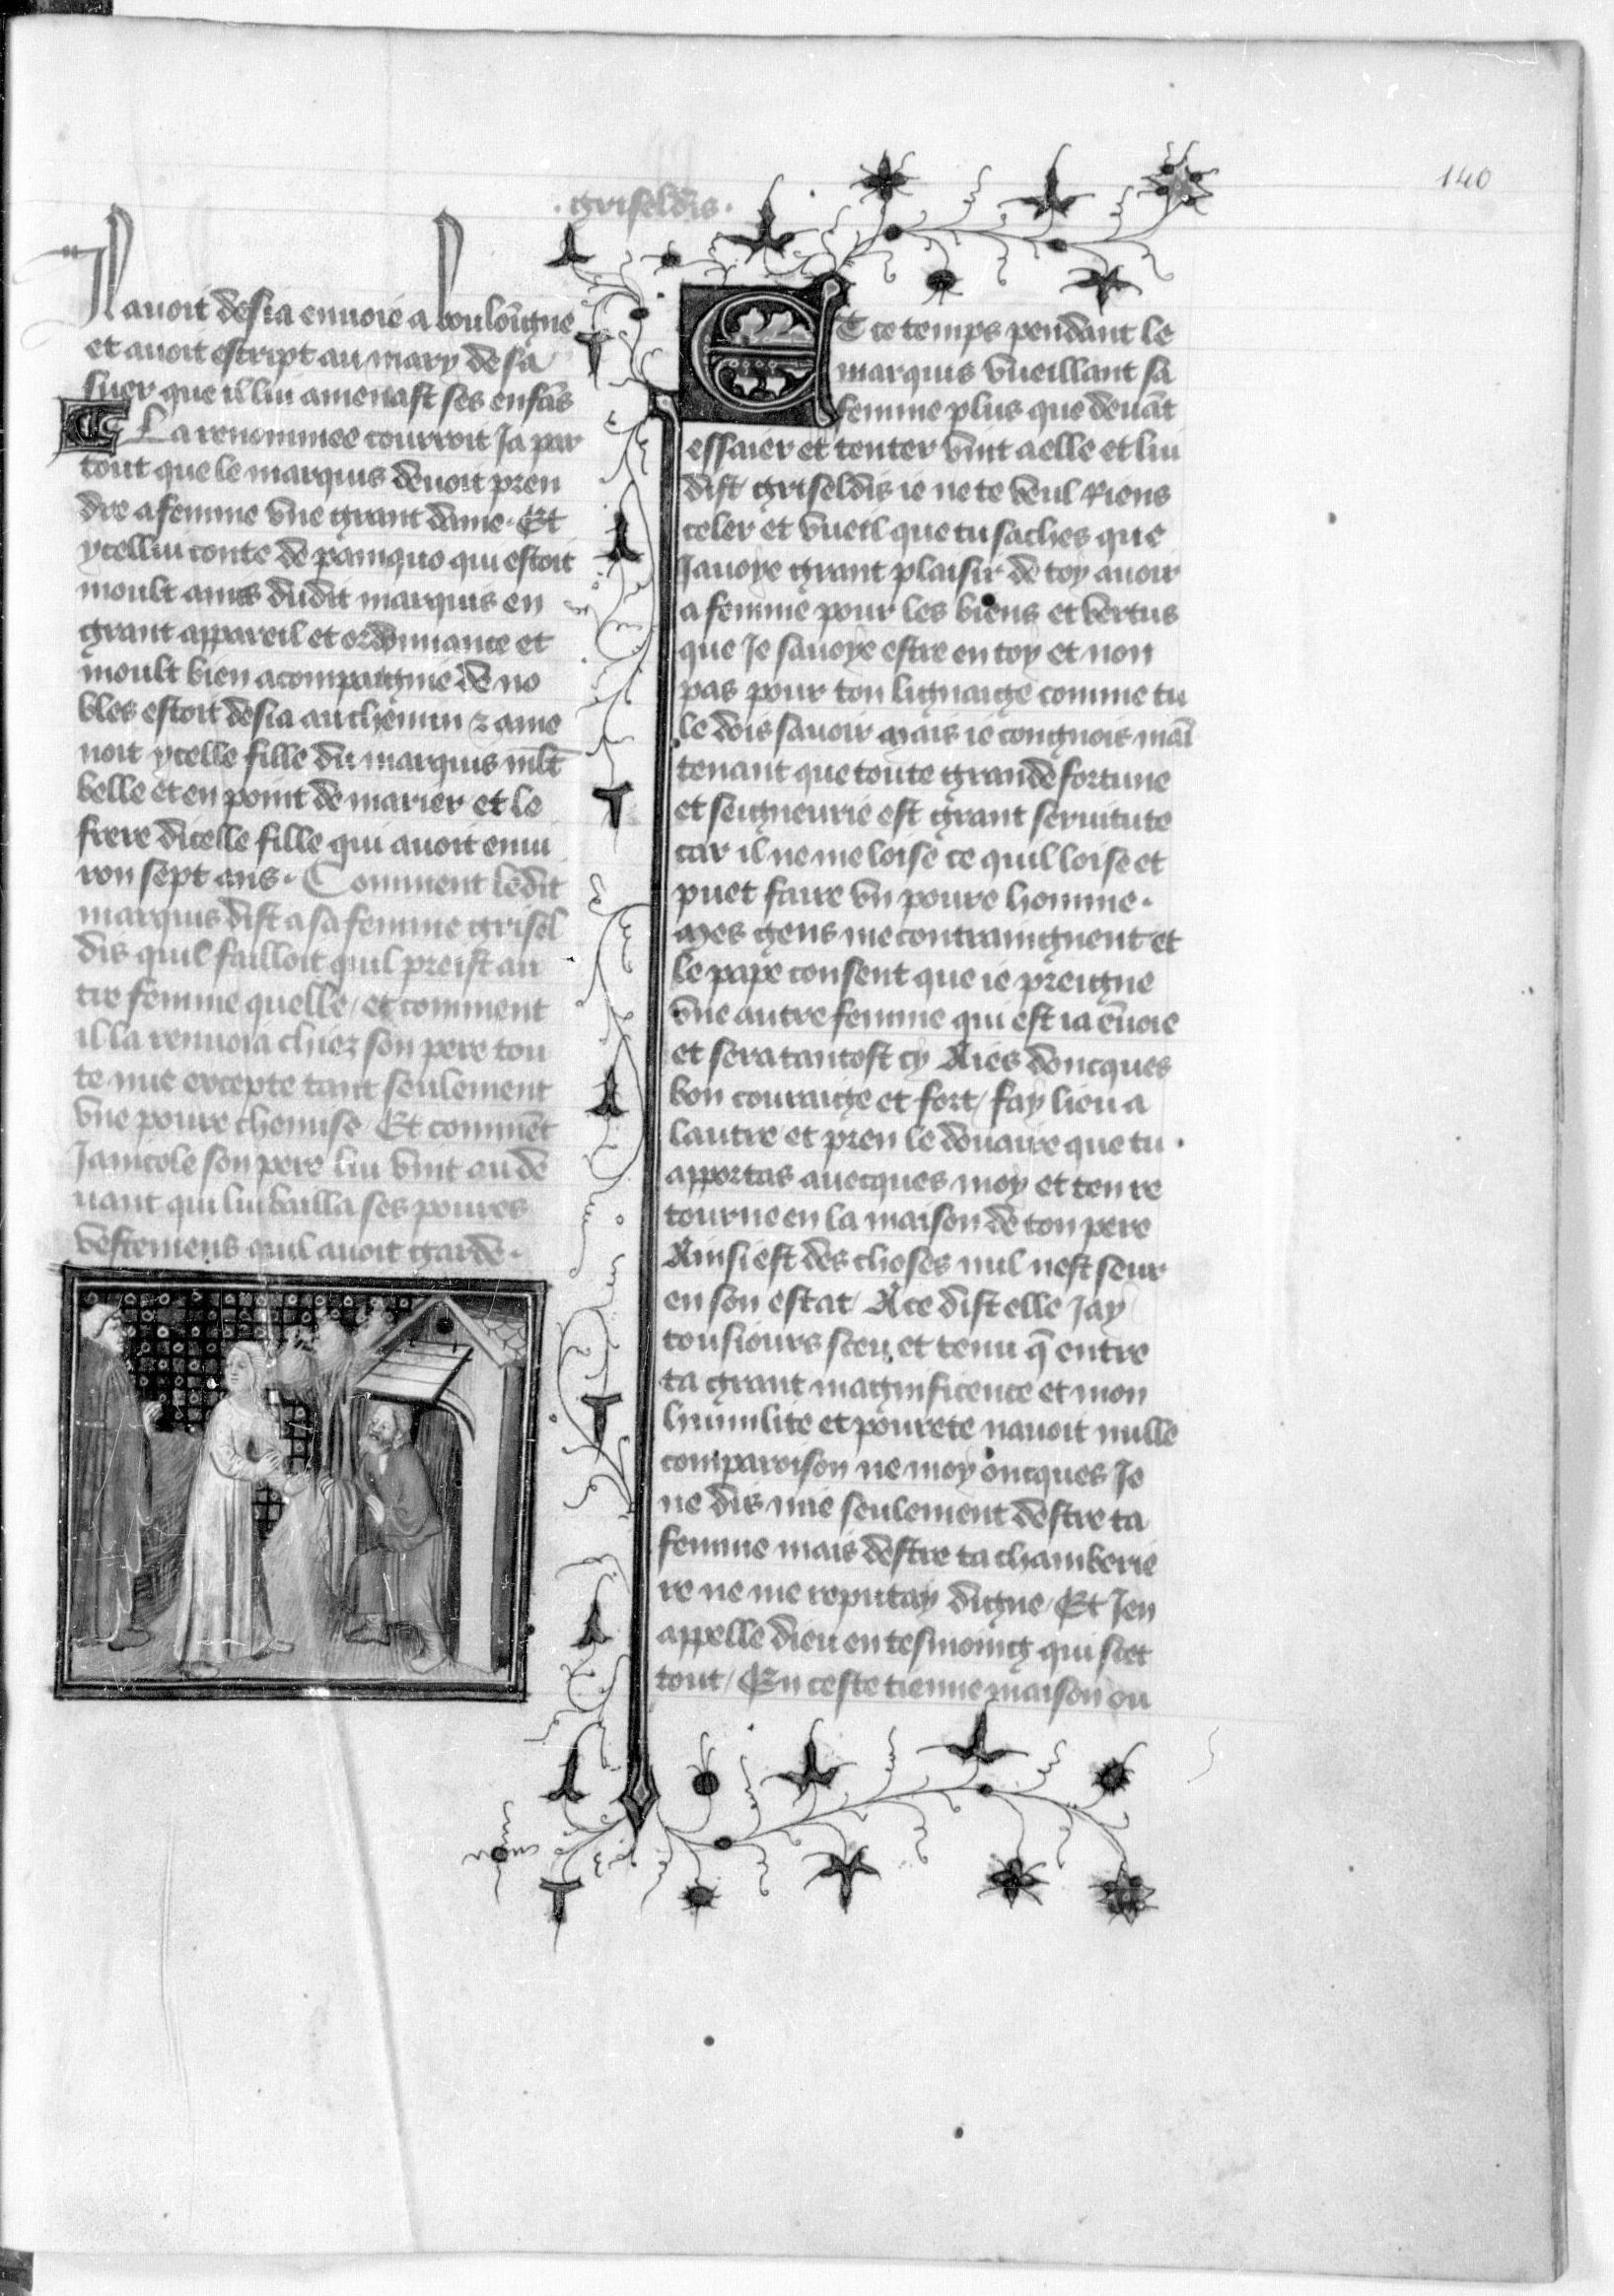 140
· griseldis ·
Il avoit desia envoié a boulo͂gne
et avoit escript au mary de sa
suer que il lui amenast ses enfa͂s
La renommee courroit Ja par
tout que le marquis devoit pren
dre a femme vne grant dame · Et
ycellui conte de paniquo qui estoit
moult amis dudit marquis en
grant appareil et ordonnance et
moult bien acompaignié de no
bles estoit desia au chemin ⁊ ame
noit ycelle fille du marquis ml͂t
belle et en point de marier et le
frere dicelle fille qui avoit envi
ron sept ans · Comment ledit
marquis dist a sa femme grisel
dis quil failloit quil preist au
tre femme quelle / et comment
il la renvoia chiez son pere tou
te nue excepte tant seulement
vne povre chemise / Et comme͂t
Janicole son pere lui vint au de
vant qui lui bailla ses povres
vestemens quil avoit garde ·
Et ce temps pendant le
marquis vueillant sa
femme plus que deva͂t
essaier et tenter vint a elle et lui
dist griseldis ie ne te veul Riens
celer et vueil que tu saches que
Javoye grant plaisir de toy avoir
a femme pour les biens et vertus
que Je savoye estre en toy et non
pas pour ton lignaige comme tu
le dois savoir Mais ie congnois mai͂
tenant que toute grande fortune
et seigneurie est grant servitute
car il ne me loise ce quil loise et
puet faire vn povre homme ·
Mes gens me contraingnent et
le pape consent que ie preigne
vne autre femme qui est ia e͂voie
et sera tantost cy Aies doncques
bon couraige et fort / fay lieu a
lautre et pren le douaire que tu ·
apportas avecques moy et ten re
tourne en la maison de ton pere
Ainsi est des choses nul nest seur
en son estat / A ce dist elle Jay
tousiours sceu et tenu q͂ entre
ta grant magnificence et mon
humilité et povreté navoit nulle
comparoison ne moy oncques Je
ne dis mie seulement destre ta
femme mais destre ta chamberie
re ne me reputay digne / Et Jen
appelle dieu en tesmoing qui scet
tout / En ceste tienne maison ou